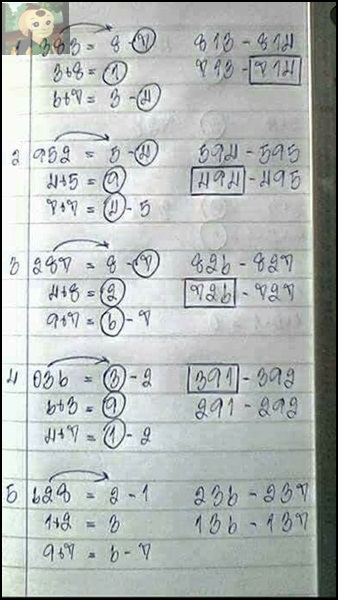 1 383 = 8-7 813 - 814
3+8 = 1 713 - 714
6+7 = 3-4
2 952 = 5-4 594 - 595
4+5 = 9 494 - 495
7+7 = 4-5
3 287 = 8-7 826 - 827
4+8 = 2 726 - 727
9+7 = 6-7
4 036 = 3-2 391 - 392
6+3 = 9 291 - 292
4+7 = 1-2
5 628 = 2-1 236 - 237
1+2 = 3 136 - 137
9+7 = 6-7